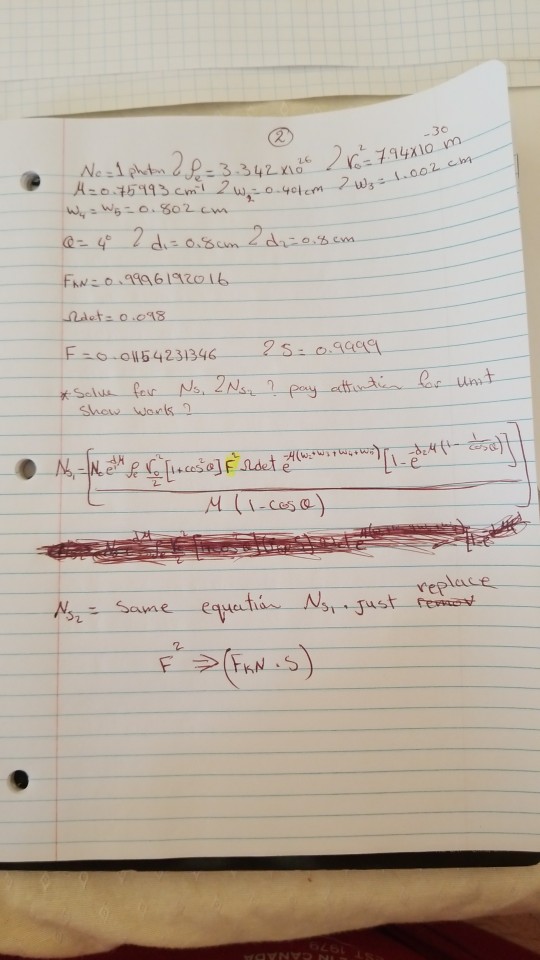 ②
N₀ = 1 photon 2 ρₑ = 3.342 x10²⁶ 2 r₀² = 794x10⁻³⁰ m
μ = 0.75993 cm⁻¹ 2 w₂ = 0.401cm 2 w₃ = 1.002 cm
w₄ = w₅ = 0.802 cm
θ = 4° 2 d₁ = 0.8cm 2 d₂ = 0.8cm
F_KN = 0.9996192016
Ωdet = 0.098
F = 0.01154231346 2 S = 0.9999
* Solve for Ns₁ 2 Ns₂ ? pay attention for unit
show work ?
Ns₁ = [N₀ e^(-d₁μ) ρₑ r₀²/2 [1+cos²θ] F² Ωdet e^(-μ(w₂+w₃+w₄+w₅)) [1-e^(-d₂μ(1-1/cosθ))]]
μ (1-cosθ)
Ns₂ = Same equation Ns₁. just replace
F² ⇒ (F_KN · S)
IN CANADA
1979